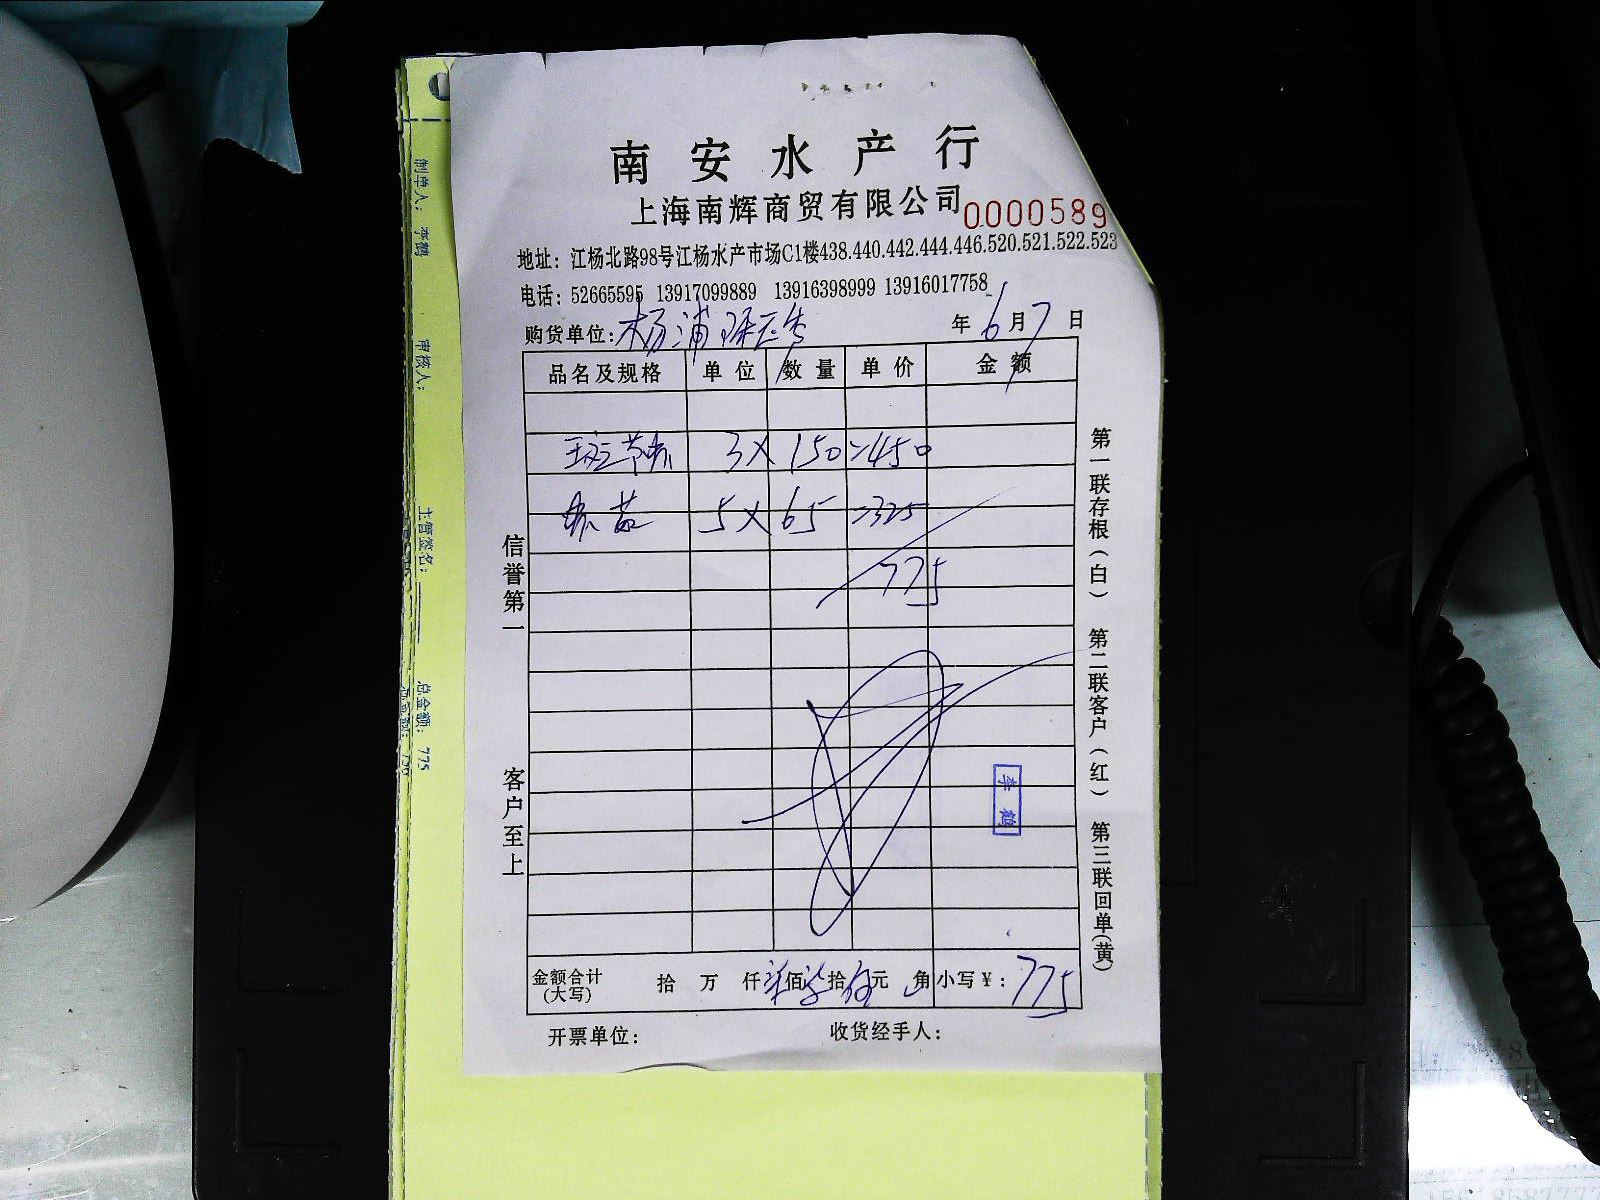 南安水产行
上海南辉商贸有限公司
0000589
地址：江杨北路98号江杨水产市场C1楼438.440.442.444.446.520.521.522.523
电话：52665595 13917099889 13916398999 13916017758
购货单位：杨浦 年6月7日
品名及规格 单位 数量 单价 金额
斑节虾 3×150=450
虾 5×65=325
775
金额合计(大写) 拾 万 仟柒佰柒拾伍元 角 小写￥：775
开票单位： 收货经手人：
信誉第一 客户至上
第一联存根（白） 第二联客户（红） 第三联回单(黄)
李鹤
制单人：李鹤 审核人： 主管签名： 总金额：775